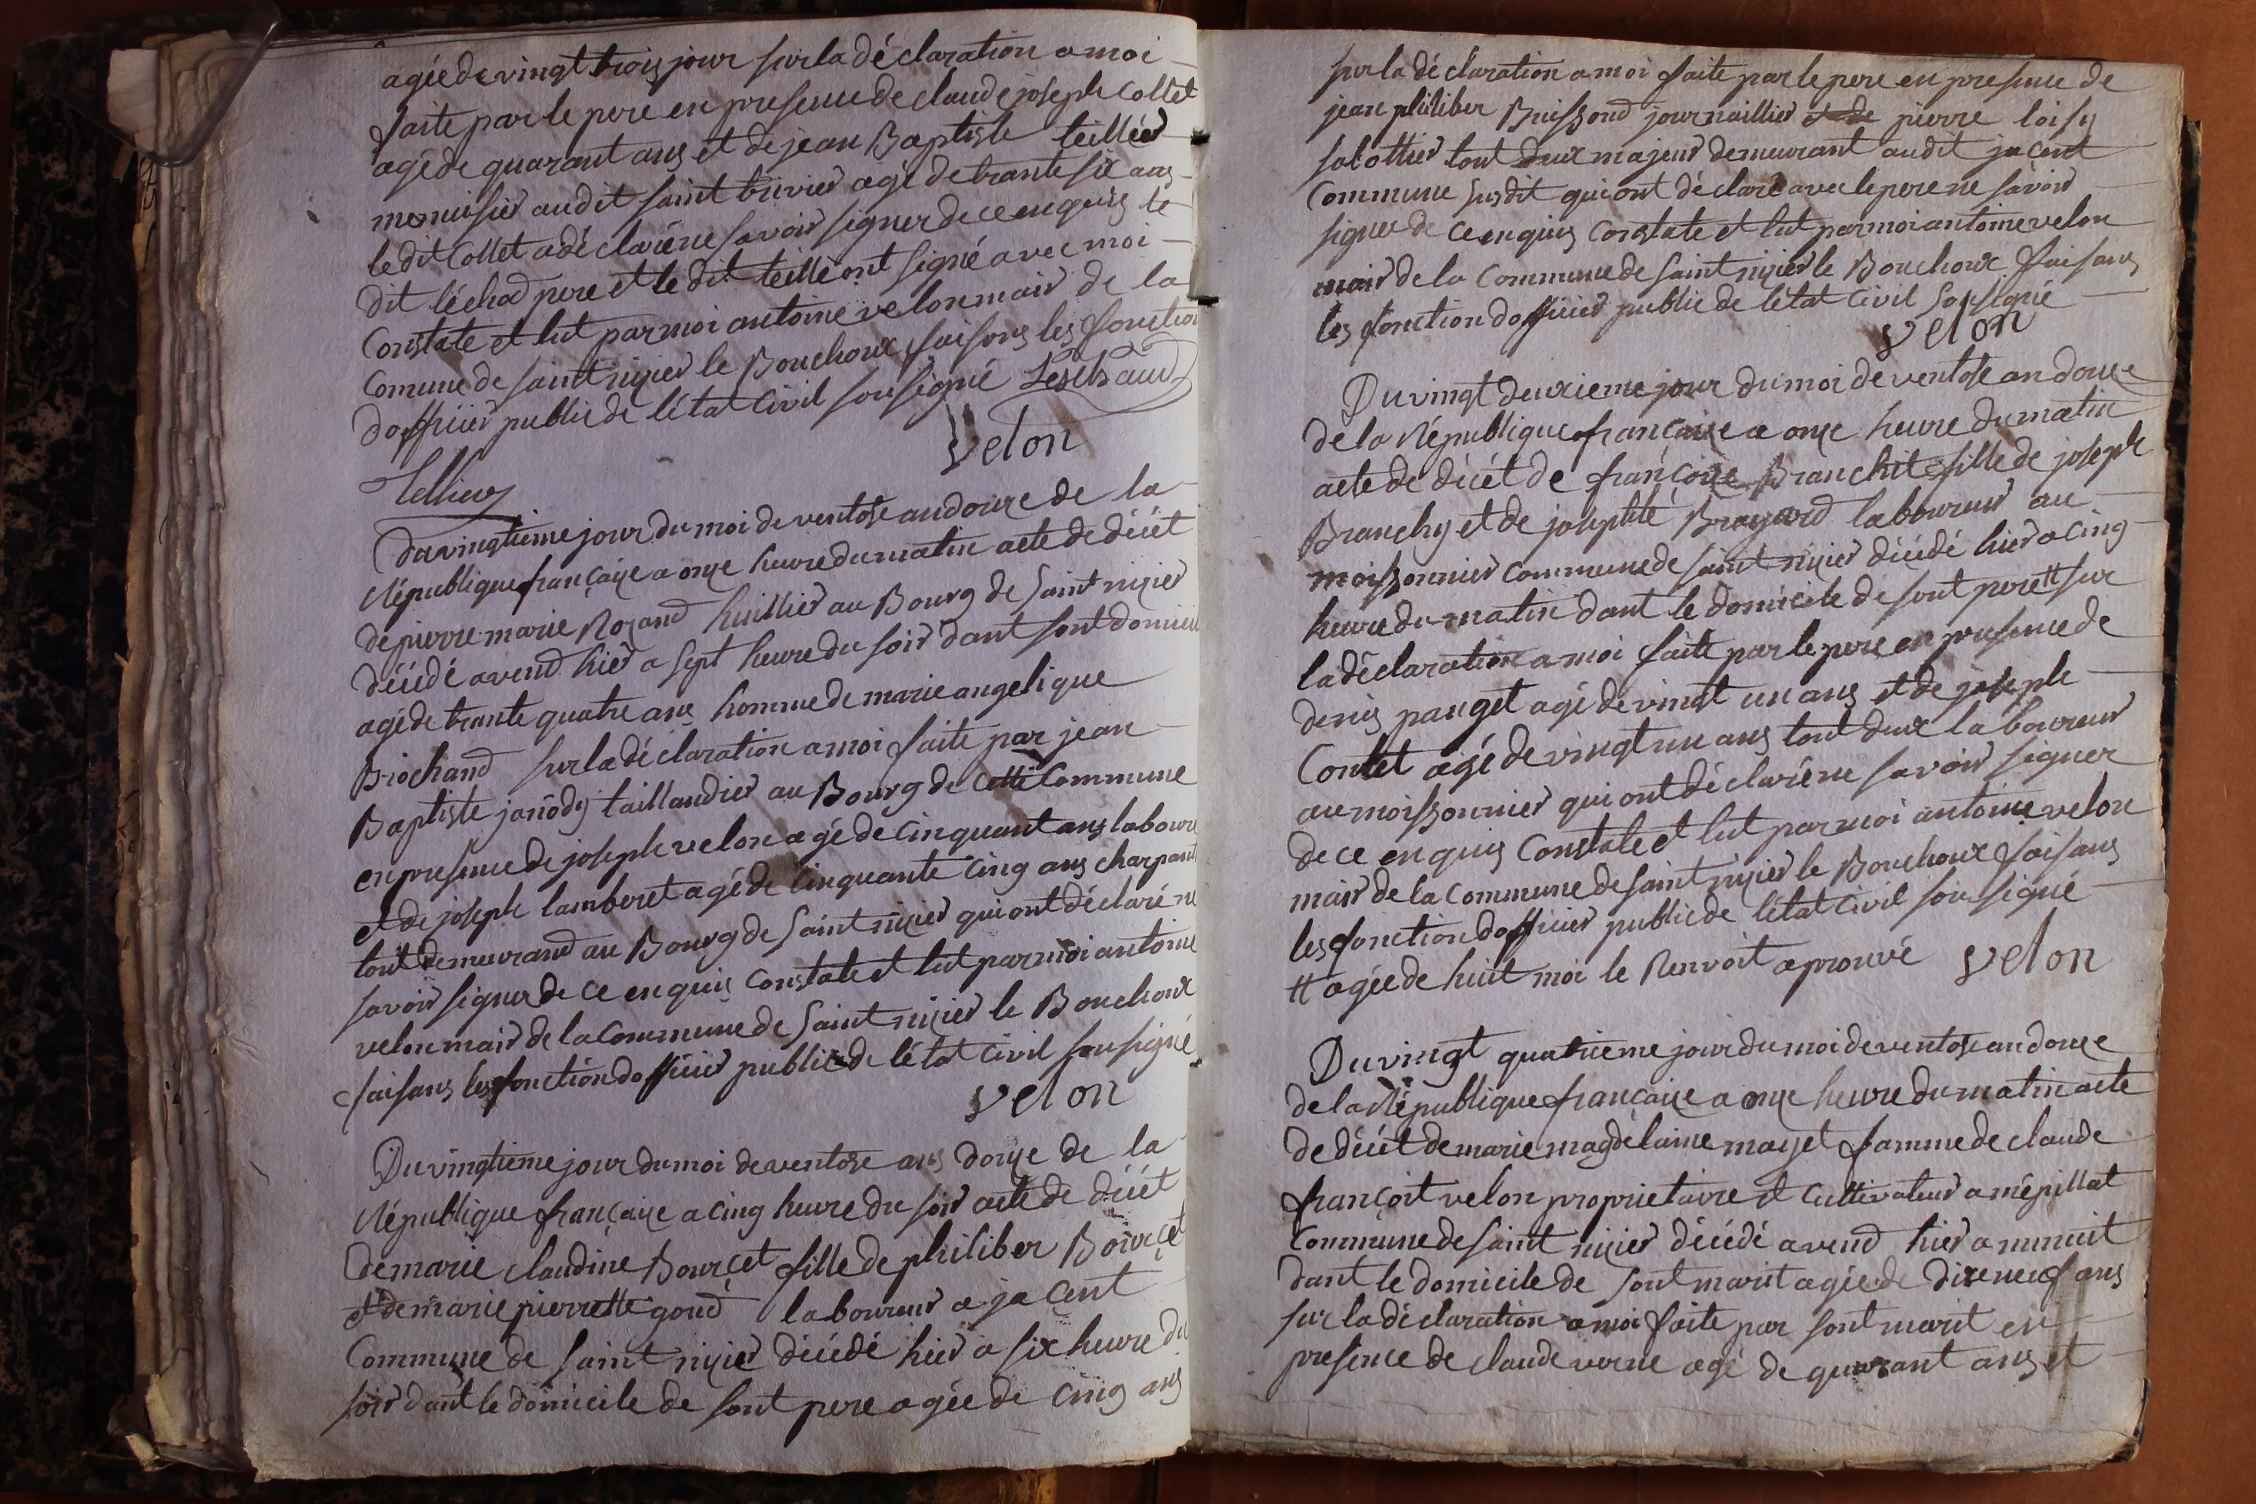 agée de vingt trois jour sur la déclaration a moi
faite par le pere en presence de claude joseph Collet
agé de quarant ans et de jean Baptiste teilliér
menuisier audit saint trivier agé de trante six ans
le dit Collet a déclaré ne savoir signer de ce enquis le
dit léchod pere et le dit teillié ont signé avec moi
Constate et lut par moi antoine velon mair de la
Comune de saint nizier le Bouchoux faisons les fonction
dofficier public de létat Civil sousigné Leschaud
velon
Tellier
Du vingtième jour du moi de ventose an douze de la
République françaize a onze heure du matin acte de décét
de pierre marie Rozand huillier au Bourg de Saint nizier
décédé avend hier a sept heure du soir dant sont domicil
agé de trante quatre ans homme de marie angelique
Briochand sur la déclaration a moi faite par jean
Baptiste janody taillandier au Bourg de Cette Commune
en presence de joseph velon agé de Cinquant ans laboure
et de joseph lamberet agé de Cinquante Cinq ans charpant
tout demeurand au Bourg de Saint nizier qui ont déclaré ne
savoir signer de ce enquis Constate et lut par moi antoine
velon mair de la Commune de Saint nizier le Bouchoux
faisans les fonction dofficier public de létat Civil sousigné
velon
Du vingtieme jour du moi de ventose ans douze de la
République françaize a cinq heure du soir acte de décét
de marie claudine Bourçet fille de philiber Bourçet
et de marie pierrette goud laboureur a jacent
Commune de saint nizier décédé hier a six heure du
soir dant le domicile de sont pere agée de Cinq ans
sur la déclaration a moi faite par le pere en presence de
jean philiber Buissond journaillier et de pierre loisy
sabottier tout deux majeur demeurant audit jacent
Commune susdit qui ont déclaré avec le pere ne savoir
signer de ce enquis Constate et lut par moi antoine velon
mair de la Commune de saint nizier le Bouchoux faisans
les fonction dofficier public de létat Civil sousigné
velon
Du vingt deuxieme jour du moi de ventose an douze
de la République françaize a onze heure du matin
acte de décét de françoise Branchit fille de joseph
Branchy et de josephté Brayard laboureur au
moissonnier Commune de saint nizier décédé hier a cinq
heure du matin dant le domicile de sont pere # sur
la déclaration a moi faite par le pere en presence de
denis panget agé de vingt un ans et de joseph
Contet agé de vingt un ans tout deux laboureur
au moissonnier qui ont déclaré ne savoir signer
de ce enquis Constate et lut par moi antoine velon
mair de la Commune de saint nizier le Bouchoux faisans
les fonction dofficier public de létat Civil sousigné
# agée de huit moi le Renvoit aprouvé velon
Du vingt quatrieme jour du moi de ventose an douze
de la République françaize a onze heure du matin acte
de décét de marie magdelaine mayet famme de claude
françoit velon proprietaire et Cultivateur a mépillat
Commune de saint nizier décédé avend hier a minuit
dant le domicile de sont marit agée de dixneuf ans
sur la déclaration a moi faite par sont marit en
presence de claude verne agé de quarant ans et